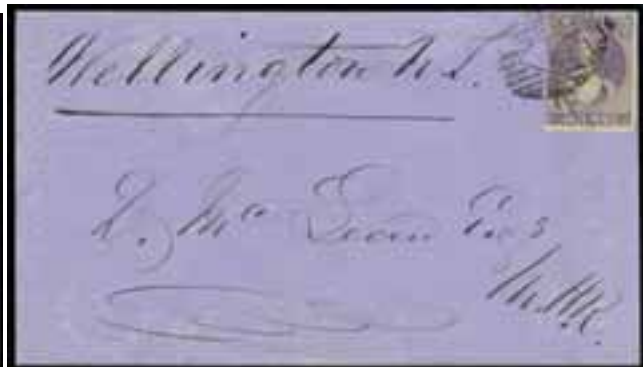 Wellington N Z.
D. Mc Lean Esq
M.H.R.